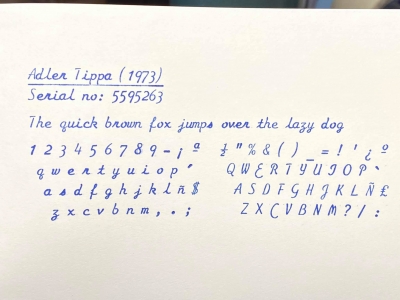 Adler Tippa (1973)
Serial no: 5595263
The quick brown fox jumps over the lazy dog
1 2 3 4 5 6 7 8 9 - ¡ ª ½ " % & ( ) _ = ! ' ¿ º
q w e r t y u i o p ´ Q W E R T Y U I O P `
a s d f g h j k l ñ $ A S D F G H J K L Ñ £
z x c v b n m , . ; Z X C V B N M ? / :